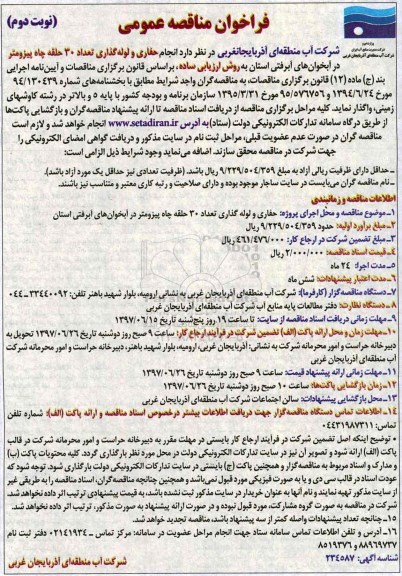 فراخوان مناقصه عمومی
(نوبت دوم)
شرکت آب منطقه‌ای آذربایجانغربی در نظر دارد انجام حفاری و لوله‌گذاری تعداد ۳۰ حلقه چاه پیزومتر
در آبخوان‌های آبرفتی استان به روش ارزیابی ساده، براساس قانون برگزاری مناقصات و آیین‌نامه اجرایی
بند (ج) ماده (۱۲) قانون برگزاری مناقصات، به مناقصه‌گران واجد شرایط مطابق با بخشنامه‌های شماره ۹۴/۱۳۰۴۳۹
مورخ ۱۳۹۴/۶/۲۴ و ۹۵/۵۷۶۷۵۶ مورخ ۱۳۹۵/۳/۳۱ سازمان برنامه و بودجه کشور با پایه ۵ و بالاتر در رشته کاوشهای
زمینی، واگذار نماید. کلیه مراحل برگزاری مناقصه از دریافت اسناد مناقصه تا ارائه پیشنهاد مناقصه‌گران و بازگشایی پاکت‌ها
از طریق درگاه سامانه تدارکات الکترونیکی دولت (ستاد) به آدرس www.setadiran.ir انجام خواهد شد و لازم است
مناقصه گران در صورت عدم عضویت قبلی، مراحل ثبت نام در سایت مذکور و دریافت گواهی امضای الکترونیکی را
جهت شرکت در مناقصه محقق سازند. اضافه می‌نماید وجود شرایط ذیل الزامی است:
ـ حداقل دارای ظرفیت ریالی آزاد به مبلغ ۹/۲۲۹/۵۰۴/۳۵۹ ریال باشد. (ظرفیت تعدادی نیز حداقل یک مورد آزاد باشد).
ـ نام مناقصه گران می‌بایست در سایت ساجار موجود بوده و دارای صلاحیت و رتبه کاری معتبر و متناسب نیز باشند.
اطلاعات مناقصه و زمانبندی
۱ـ موضوع مناقصه و محل اجرای پروژه: حفاری و لوله گذاری تعداد ۳۰ حلقه چاه پیزومتر در آبخوان‌های آبرفتی استان
۲ـ مبلغ برآورد اولیه: حدود ۹/۲۲۹/۵۰۴/۳۵۹ ریال
۳ـ مبلغ تضمین شرکت در ارجاع کار: ۴۶۱/۴۷۶/۰۰۰ ریال
۴ـ قیمت اسناد مناقصه: ۲/۰۰۰/۰۰۰ ریال
۵ـ مدت اجرا: ۲۴ ماه
۶ـ مدت اعتبار پیشنهادات: شش ماه
۷ـ دستگاه مناقصه‌گزار (کارفرما): شرکت آب منطقه‌ای آذربایجان غربی به نشانی ارومیه، بلوار شهید باهنر تلفن: ۳۳۴۴۰۰۹۲ـ۰۴۴
۸ـ دستگاه نظارت: دفتر مطالعات پایه منابع آب شرکت آب منطقه‌ای آذربایجان غربی
۹ـ مهلت زمانی دریافت اسناد مناقصه از سایت: تا ساعت ۱۹ روز پنج‌شنبه تاریخ ۱۳۹۷/۰۶/۱۵
۱۰ـ مهلت زمان و محل ارائه پاکت (الف) تضمین شرکت در فرآیند ارجاع کار: ساعت ۹ صبح روز دوشنبه تاریخ ۱۳۹۷/۰۶/۲۶ تحویل به
دبیرخانه حراست و امور محرمانه شرکت به نشانی: آذربایجان غربی، ارومیه، بلوار شهید باهنر، دبیرخانه حراست و امور محرمانه شرکت
آب منطقه‌ای آذربایجان غربی
۱۱ـ مهلت زمانی ارائه پیشنهاد قیمت: ساعت ۹ صبح روز دوشنبه تاریخ ۱۳۹۷/۰۶/۲۶
۱۲ـ زمان بازگشایی پاکت‌ها: ساعت ۱۰ صبح روز دوشنبه تاریخ ۱۳۹۷/۰۶/۲۶
۱۳ـ محل بازگشایی پیشنهادات: سالن اجتماعات شرکت آب منطقه‌ای آذربایجان غربی
۱۴ـ اطلاعات تماس دستگاه مناقصه‌گزار جهت دریافت اطلاعات بیشتر درخصوص اسناد مناقصه و ارائه پاکت (الف): شماره تلفن
تماس: ۰۴۴۳۱۹۸۷۳۱۱
* توضیح اینکه اصل تضمین شرکت در فرآیند ارجاع کار بایستی در مهلت مقرر به دبیرخانه حراست و امور محرمانه شرکت در قالب
پاکت (الف) ارائه شود و تصویر آن نیز در سایت تدارکات الکترونیکی دولت در محل مورد نظر بارگذاری گردد. کلیه محتویات پاکت (ب)
و مدارک و اسناد مربوط به مناقصه‌گزار و همچنین پاکت (ج) بایستی در سایت تدارکات الکترونیکی دولت بارگذاری شود. توجه شود که
عودت اسناد در قالب سی دی و یا به صورت فیزیکی مورد قبول نمی‌باشد و همچنین چنانچه مناقصه‌گران، اسناد مناقصه را به طریقی غیر
از سایت مذکور تهیه نمایند و نام آنها به عنوان خریدار در سایت مذکور ثبت نشده باشد، به قیمت پیشنهادی ترتیب اثر داده نخواهد شد.
شرکت در مناقصه به صورت گروه مشارکت، مورد قبول نبوده و در صورت ارائه پیشنهاد به صورت مذکور، ترتیب اثر داده نخواهد شد.
۱۵ـ چنانچه تعداد پیشنهادات واصله کمتر از سه پیشنهاد باشد، مناقصه تجدید خواهد شد.
۱۶ـ آدرس و تلفن اطلاعات تماس سامانه ستاد جهت انجام مراحل عضویت در سامانه: مرکز تماس ـ ۰۲۱۴۱۹۳۴ دفتر ثبت نام
۸۸۹۶۹۷۳۷ و ۸۵۱۹۳۷۶
شناسه آگهی: ۲۳۴۵۸۷
شرکت آب منطقه‌ای آذربایجان غربی